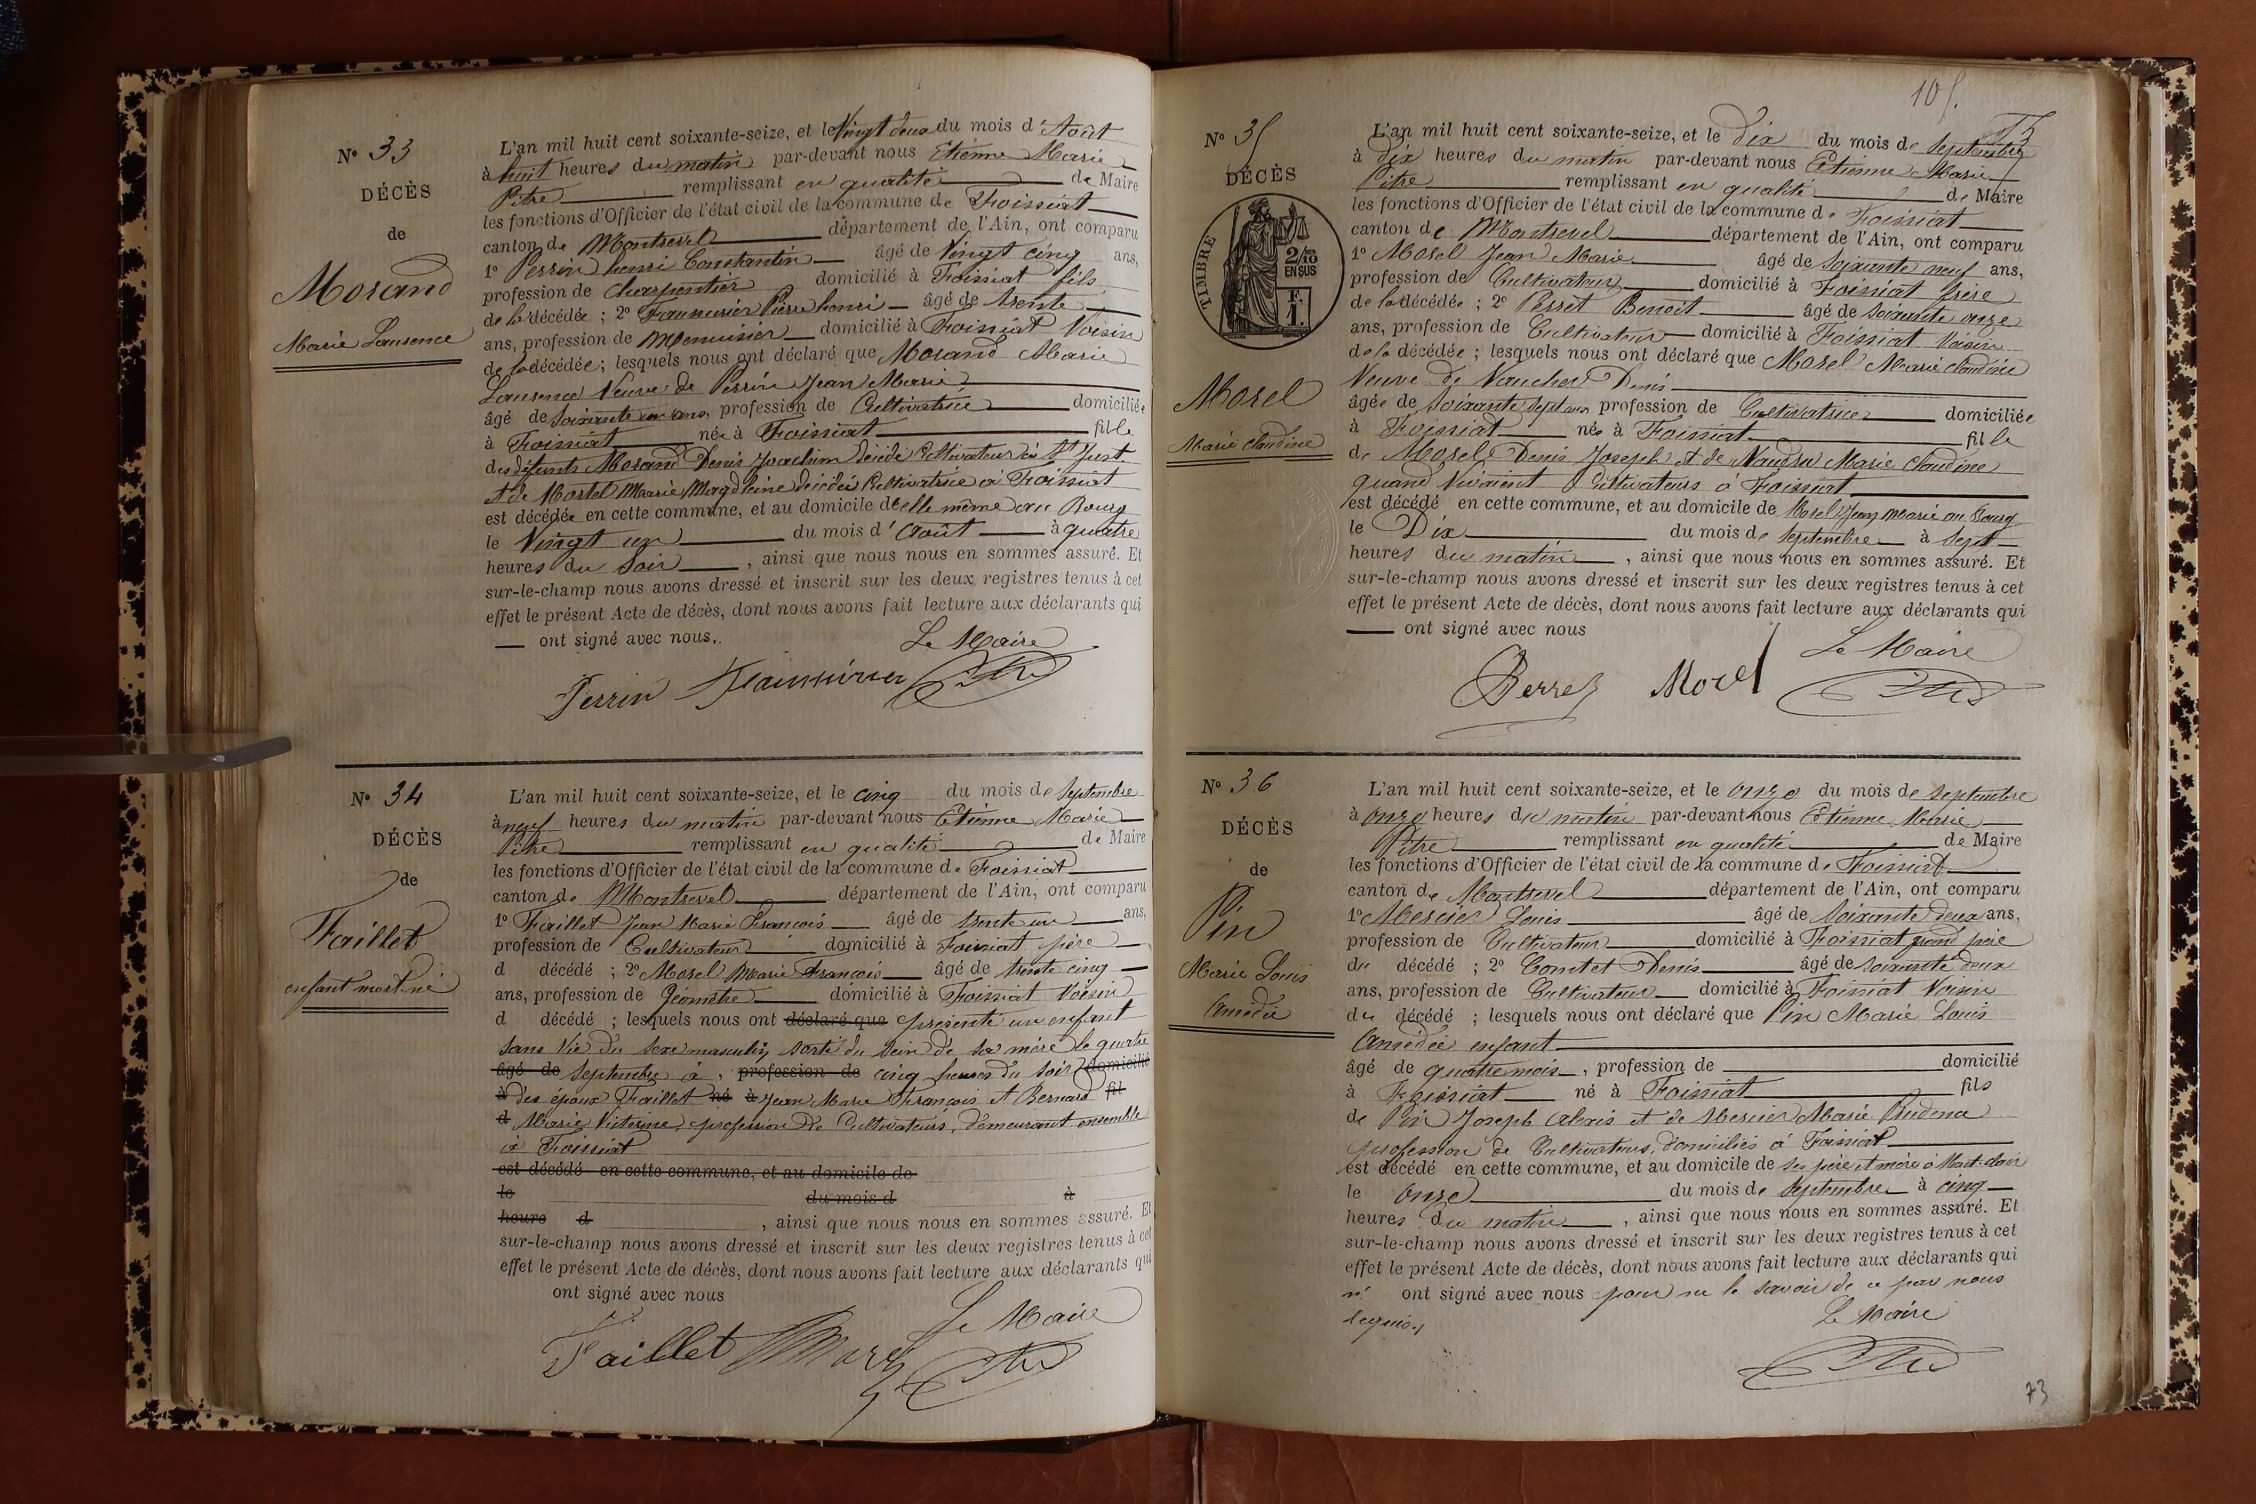 N° 33
DÉCÈS
de
Morand
Marie Laurence
L'an mil huit cent soixante-seize, et le Vingt deux du mois d'Août
à huit heures du matin par-devant nous Etienne Marie
Pitre remplissant en qualité de Maire
les fonctions d'Officier de l'état civil de la commune de Foissiat
canton de Montrevel département de l'Ain, ont comparu
1° Perrin henri Constantin âgé de Vingt cinq ans,
profession de charpentier domicilié à Foissiat fils
de la décédée ; 2° Pierre henri âgé de trente
ans, profession de Menuisier domicilié à Foissiat Voisin
de la décédée ; lesquels nous ont déclaré que Morand Marie
Laurence Veuve de Perrin Jean Marie
âgé de soixante un ans, profession de Cultivatrice domiciliée
à Foissiat née à Foissiat fille
des défunts Morand Denis Joachim décédé Cultivateur à St Just
et de Mortel Marie Magdeleine décédée Cultivatrice à Foissiat
est décédée en cette commune, et au domicile d'elle même au Bourg
le Vingt un du mois d'Août à quatre
heures du soir , ainsi que nous nous en sommes assuré. Et
sur-le-champ nous avons dressé et inscrit sur les deux registres tenus à cet
effet le présent Acte de décès, dont nous avons fait lecture aux déclarants qui
— ont signé avec nous.
Le Maire
Perrin
N° 34
DÉCÈS
de
Faillet
enfant mort né
L'an mil huit cent soixante-seize, et le cinq du mois de septembre
à neuf heures du matin par-devant nous Etienne Marie
Pitre remplissant en qualité de Maire
les fonctions d'Officier de l'état civil de la commune de Foissiat
canton de Montrevel département de l'Ain, ont comparu
1° Faillet Jean Marie François âgé de trente un ans,
profession de Cultivateur domicilié à Foissiat père
d décédé ; 2° Morel Marie François âgé de trente cinq
ans, profession de Géomètre domicilié à Foissiat Voisin
d décédé ; lesquels nous ont déclaré que présenté un enfant
sans Vie du sexe masculin sorti du sein de sa mère le quatre
âgé de septembre à , profession de cinq heures du soir domicilié
à des époux Faillet né à Jean Marie François et Bernard fil
d Marie Victorine, profession de Cultivateurs, demeurant ensemble
à Foissiat
est décédé en cette commune, et au domicile de
le du mois d à
heure d , ainsi que nous nous en sommes assuré. Et
sur-le-champ nous avons dressé et inscrit sur les deux registres tenus à cet
effet le présent Acte de décès, dont nous avons fait lecture aux déclarants qui
ont signé avec nous
Le Maire
Faillet Morel
105.
73
N° 35
DÉCÈS
TIMBRE
2/10
EN SUS
F.
1.
Morel
Marie Claudine
L'an mil huit cent soixante-seize, et le dix du mois de septembre
à dix heures du matin par-devant nous Etienne Marie
Pitre remplissant en qualité de Maire
les fonctions d'Officier de l'état civil de la commune de Foissiat
canton de Montrevel département de l'Ain, ont comparu
1° Morel Jean Marie âgé de soixante neuf ans,
profession de Cultivateur domicilié à Foissiat frère
de la décédée ; 2° Perret Benoit âgé de soixante onze
ans, profession de Cultivateur domicilié à Foissiat Voisin
de la décédée ; lesquels nous ont déclaré que Morel Marie Claudine
Veuve de Vaucher Denis
âgée de soixante sept ans profession de Cultivatrice domiciliée
à Foissiat née à Foissiat fille
de Morel Denis Joseph et de Marie Claudine
quand Vivaient Cultivateurs à Foissiat
est décédé en cette commune, et au domicile de Morel Jean Marie au Bourg
le Dix du mois de septembre à sept
heures du matin , ainsi que nous nous en sommes assuré. Et
sur-le-champ nous avons dressé et inscrit sur les deux registres tenus à cet
effet le présent Acte de décès, dont nous avons fait lecture aux déclarants qui
— ont signé avec nous
Le Maire
Perret Morel
N° 36
DÉCÈS
de
Pin
Marie Louis
Amédée
L'an mil huit cent soixante-seize, et le onze du mois de septembre
à onze heures du matin par-devant nous Etienne Marie
Pitre remplissant en qualité de Maire
les fonctions d'Officier de l'état civil de la commune de Foissiat
canton de Montrevel département de l'Ain, ont comparu
1° Mercier Louis âgé de soixante deux ans,
profession de Cultivateur domicilié à Foissiat grand père
du décédé ; 2° Comtet Denis âgé de soixante deux
ans, profession de Cultivateur domicilié à Foissiat Voisin
du décédé ; lesquels nous ont déclaré que Pin Marie Louis
Amédée enfant
âgé de quatre mois , profession de domicilié
à Foissiat né à Foissiat fils
de Pin Joseph Alexis et de Mercier Marie Prudence
profession de Cultivateurs, domiciliés à Foissiat
est décédé en cette commune, et au domicile de ses père et mère à
le onze du mois de septembre à cinq
heures du matin , ainsi que nous nous en sommes assuré. Et
sur-le-champ nous avons dressé et inscrit sur les deux registres tenus à cet
effet le présent Acte de décès, dont nous avons fait lecture aux déclarants qui
n' ont signé avec nous pour ne le savoir de ce par nous
requis
Le Maire
73